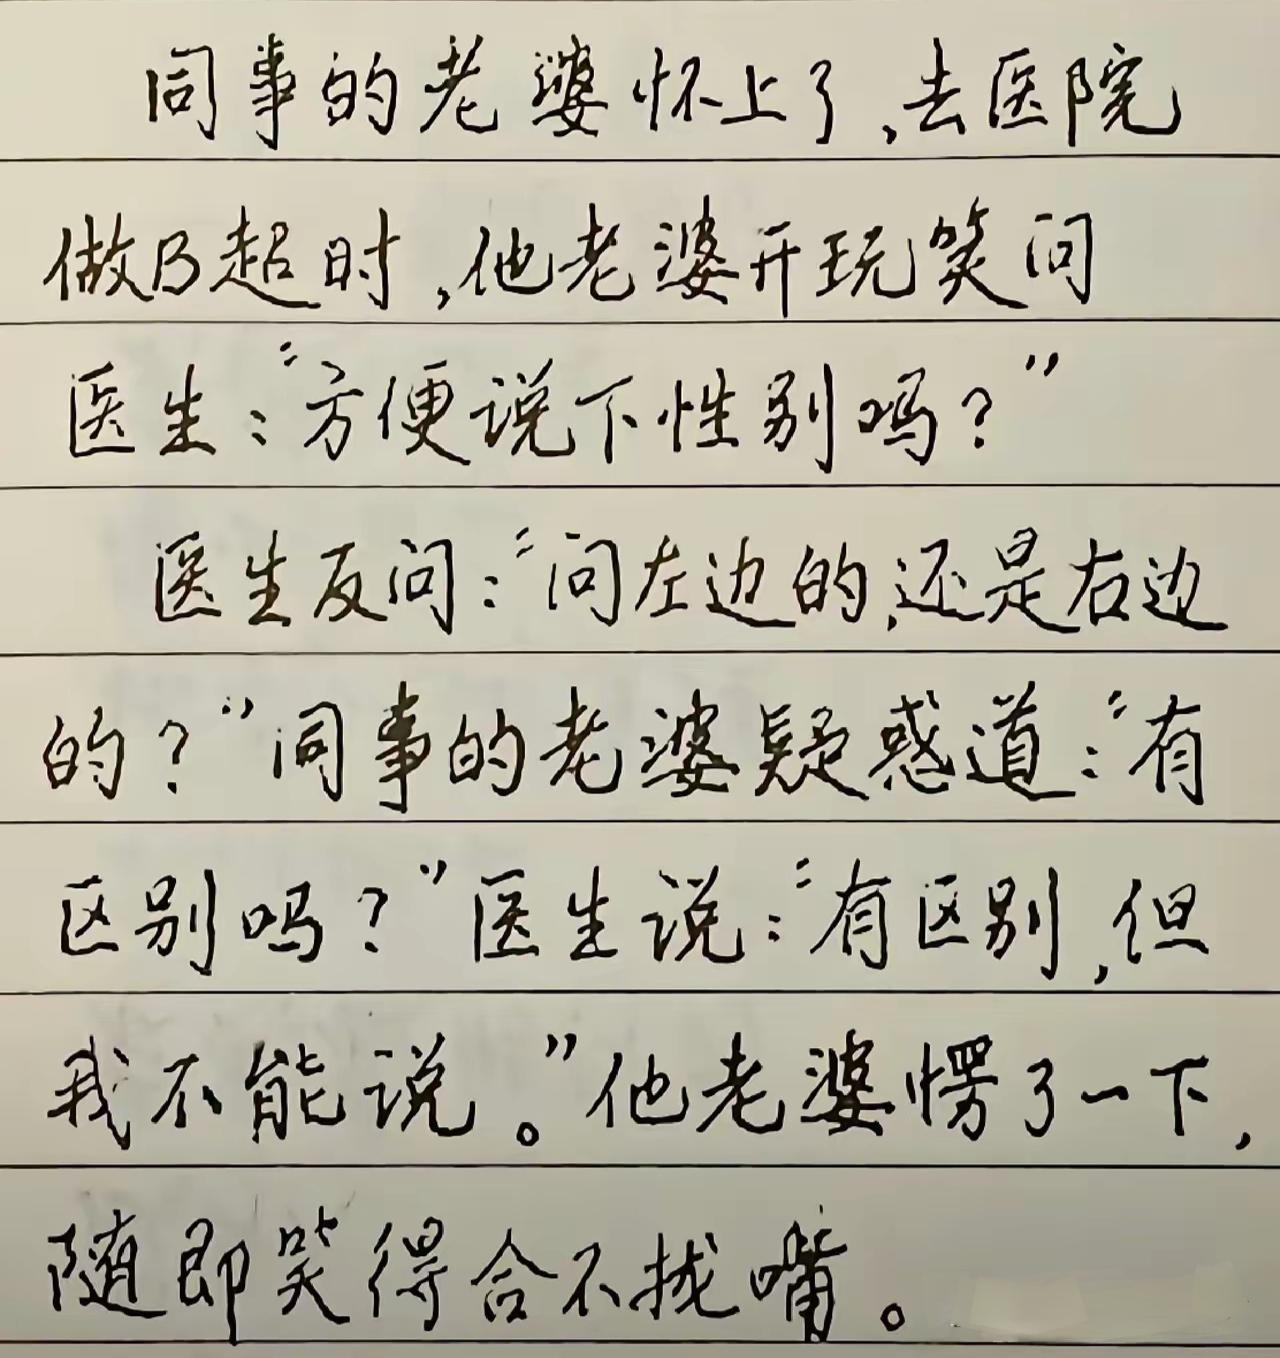 同事的老婆怀上了,去医院
做B超时,他老婆开玩笑问
医生:“方便说下性别吗?”
医生反问:“问左边的,还是右边
的?”同事的老婆疑惑道:“有
区别吗?”医生说:“有区别,但
我不能说。”他老婆愣了一下,
随即笑得合不拢嘴。